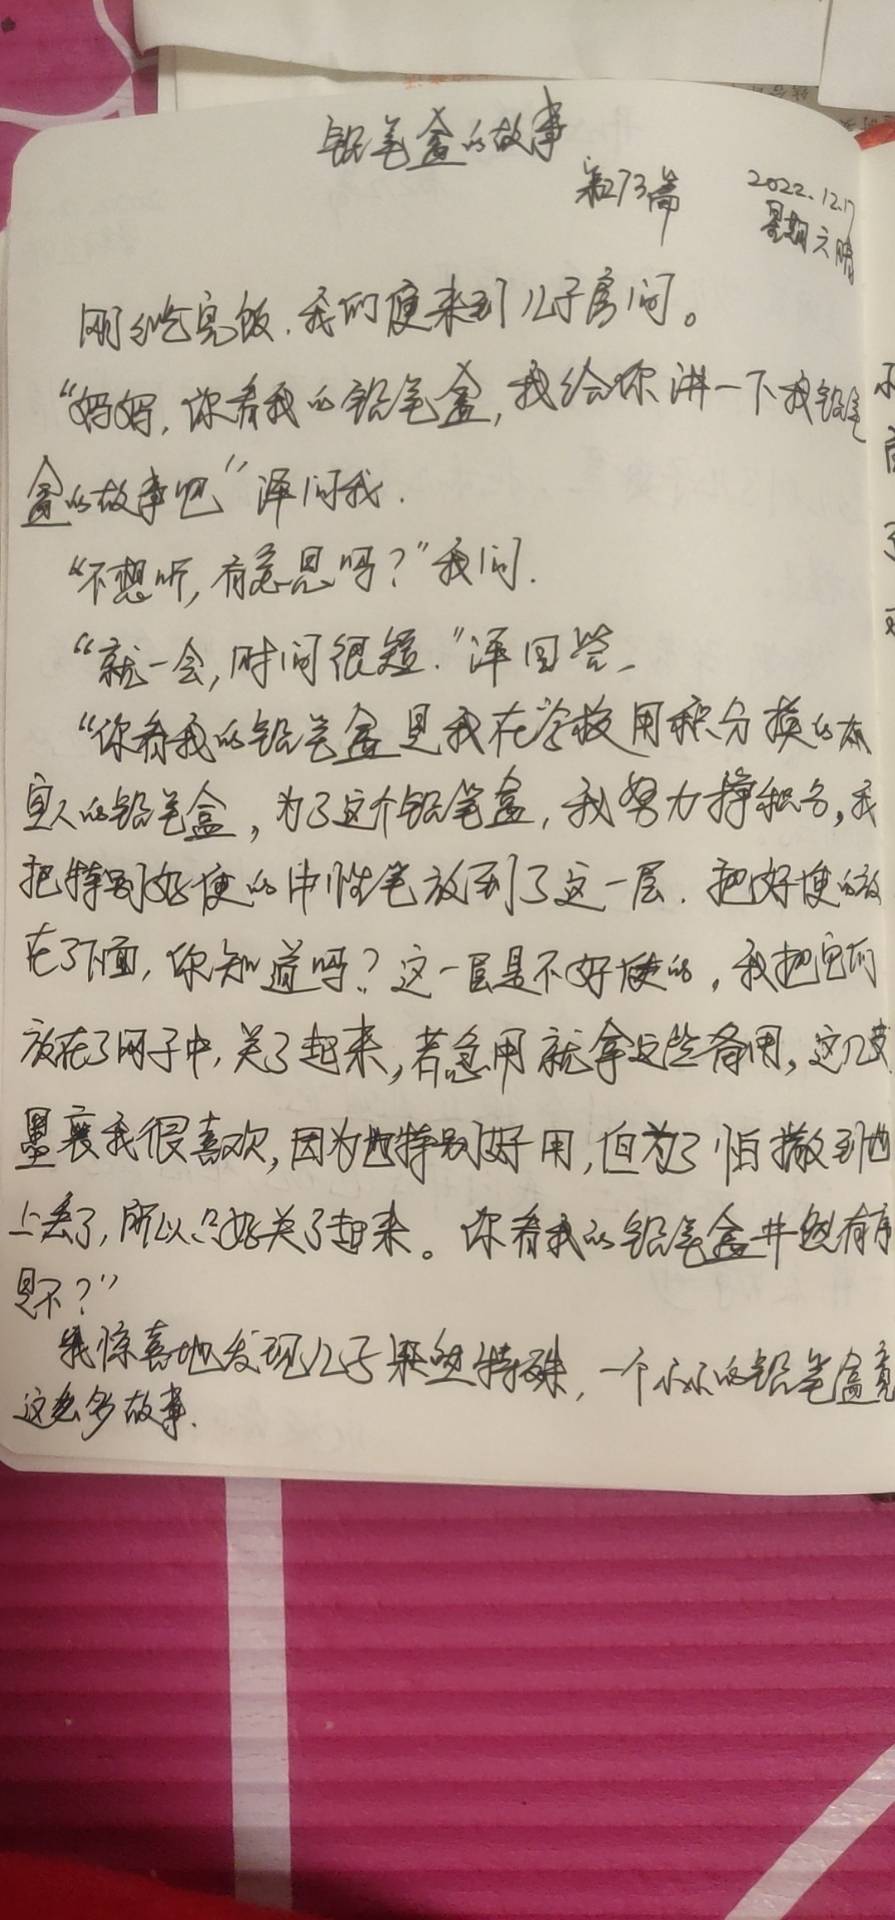 铅笔盒的故事
第273篇
2022.12.17
星期六 晴
刚吃完饭,我们便来到儿子房间。
“妈妈,你看我的铅笔盒,我给你讲一下我铅笔
盒的故事吧”泽问我.
“不想听,有意思吗?”我问.
“就一会,时间很短.”泽回答.
“你看我的铅笔盒是我在学校用积分换的
的铅笔盒,为了这个铅笔盒,我努力挣积分,我
把特别好使的中性笔放到了这一层.把好使的放
在了下面,你知道吗?这一层是不好使的,我把它们
放在了网子中,关了起来,若急用就拿这些备用,这几支
墨囊我很喜欢,因为它特别好用,但为了怕撒到地
上丢了,所以只好关了起来。你看我的铅笔盒井然有序
是不?”
我惊喜地发现儿子 特殊,一个小小的铅笔盒竟
这么多故事.